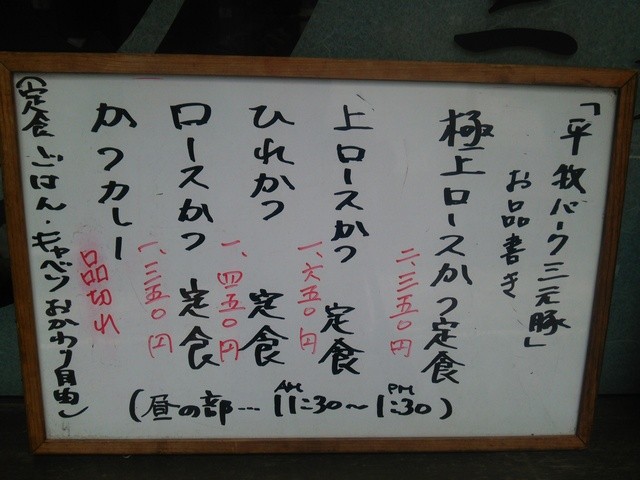 「平牧バーク三元豚」
お品書き
極上ロースかつ定食
二、三五〇円
上ロースかつ 定食
一、六五〇円
ひれかつ 定食
一、四五〇円
ロースかつ 定食
一、三五〇円
かつカレー
品切れ
(定食ごはん・キャベツおかわり自由)
(昼の部… AM11:30～PM1:30)